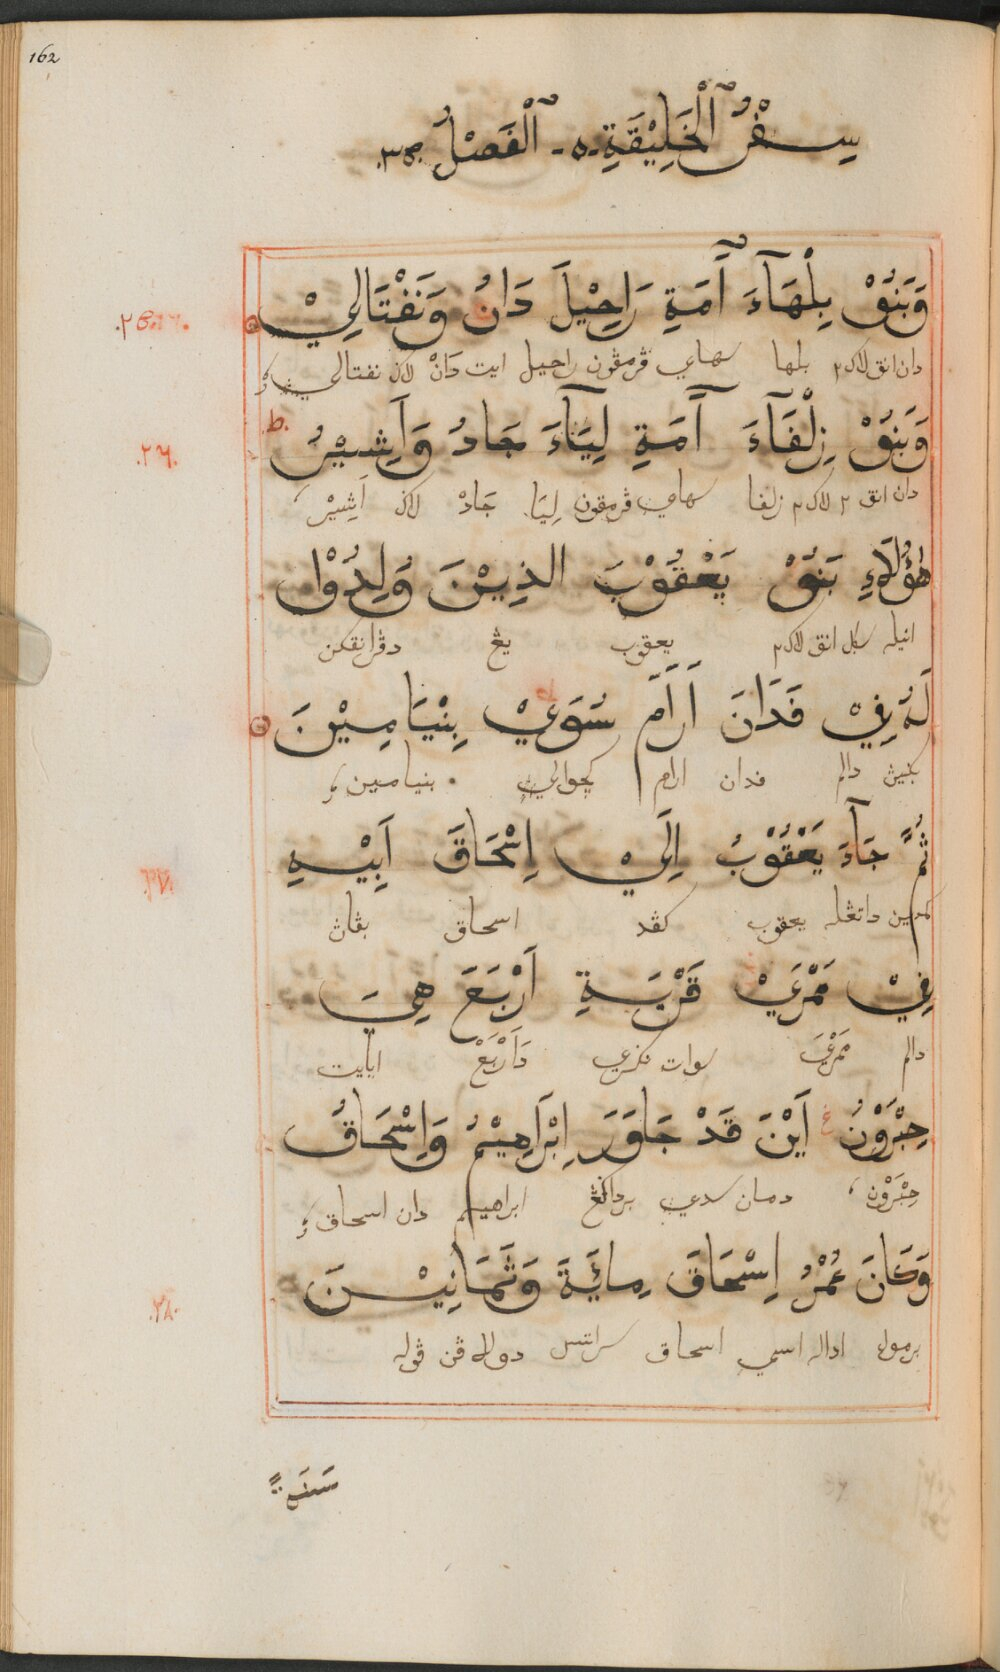 162
سِفْرُ ٱلْخَلِيْقَةِ ـ ٥ ـ ٱلْفَصْلُ ٣٥.
وَبَنُوْ بِلْهَآءَ آَمَةِ رَاحِيْلَ دَانُ وَنَفْتَالِيْ
.٢٥.
دان انق لاك٢ بلها سهاي ڤرمڤون راحيل ايت دَانْ لاڬ نفتالي
وَبَنُوْ زِلْفَآءَ آَمَةِ لِيَآءَ جَادُ وَاَشِيْرُ
.٢٦.
دان انق ٢ لاك٢ زلفا سهاي ڤرمڤون لِيَا جَادْ لاڬ اَشِيْر
هٰؤُلَآءِ بَنُوْ يَعْقُوْبَ الذِيْنَ وُلِدُوْا
انيله سكل انق لاك٢ يعقوب يڠ دڤرانقكن
لَهُ فِيْ فَدَانَ اَرَامَ سُوَيْ بِنْيَامِيْنَ
بݢيڽ دالم فدان ارام كچوالي بنيامين
ثُمَّ جَآءَ يَعْقُوْبُ اِلَيْ اِسْحَاقَ اَبِيْهِ
.٢٧.
كمدين داتڠله يعقوب كڤد اسحاق بڤاڽ
فِيْ مَمْرَيْ قَرْيَةِ اَرْبَعَ هِيَ
دالم مَمْرَيْ سوات نكري دَاَرْبَعْ ايايت
حِبْرَوْنُ اَيْنَ قَدْ جَاوَرَ اِبْرَاهِيْمُ وَاِسْحَاقُ
حِبْرَوْن دمان سدي برداݢڠ ابراهيم دان اسحاق
وَكَانَ عُمْرُ اِسْحَاقَ مِائَةَ وَثَمَانِيْنَ
.٢٨.
برموله اداله اسي اسحاق سراتس دولاڤن ڤوله
سَنَةً